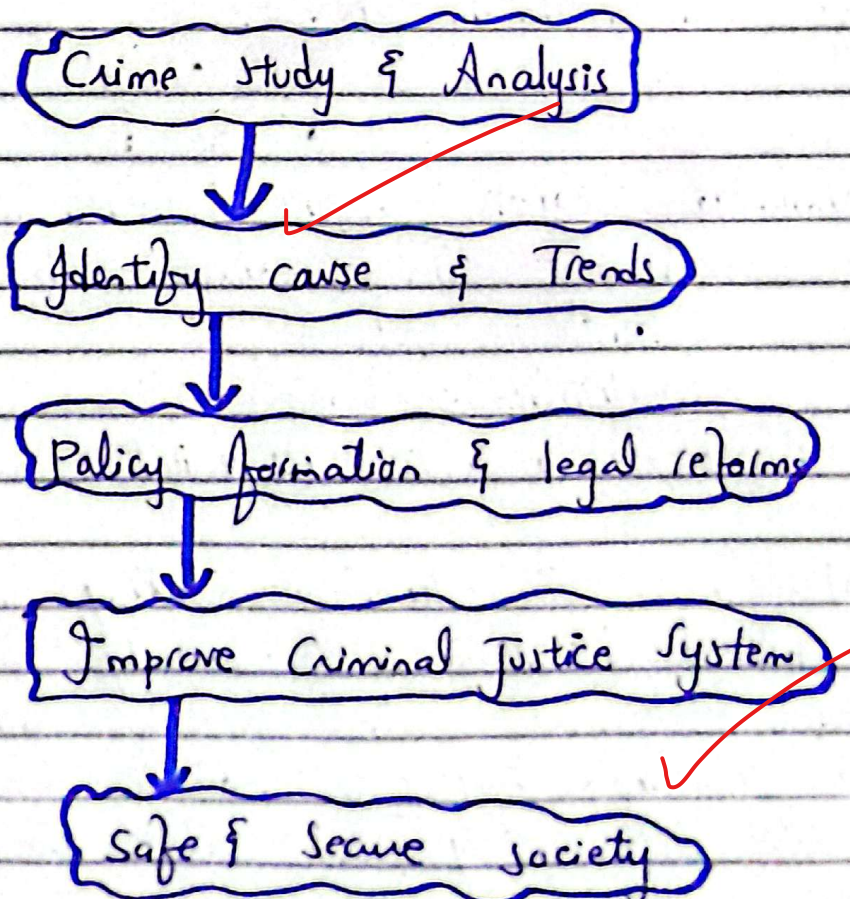 Crime study & Analysis
Identify cause & Trends
Policy formation & legal reforms
Improve Criminal Justice System
Safe & Secure society